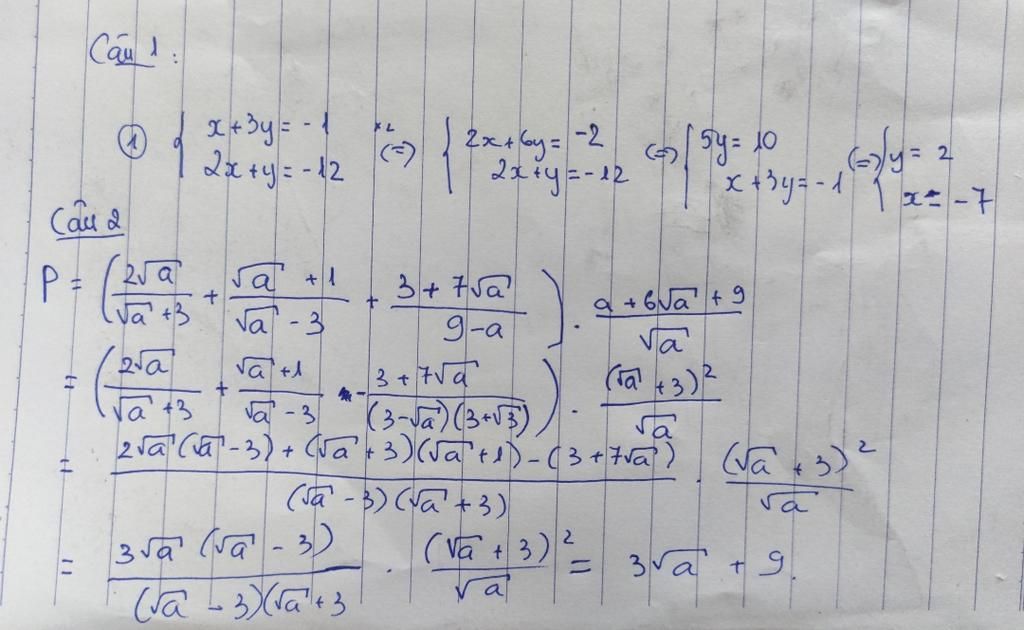 Câu 1:
① { x+3y = -1 ; 2x+y = -12 ×2 (=) { 2x+6y = -2 ; 2x+y = -12 (=) { 5y = 10 ; x+3y = -1 (=) { y = 2 ; x = -7
Câu 2
P = ( 2√a / (√a+3) + (√a+1) / (√a-3) + (3+7√a) / (9-a) ) . (a+6√a+9) / √a
= ( 2√a / (√a+3) + (√a+1) / (√a-3) - (3+7√a) / (3-√a)(3+√3) ) . (√a+3)² / √a
= 2√a(√a-3)+(√a+3)(√a+1)-(3+7√a) / (√a-3)(√a+3) . (√a+3)² / √a
= 3√a(√a-3) / (√a-3)(√a+3 . (√a+3)² / √a = 3√a + 9.